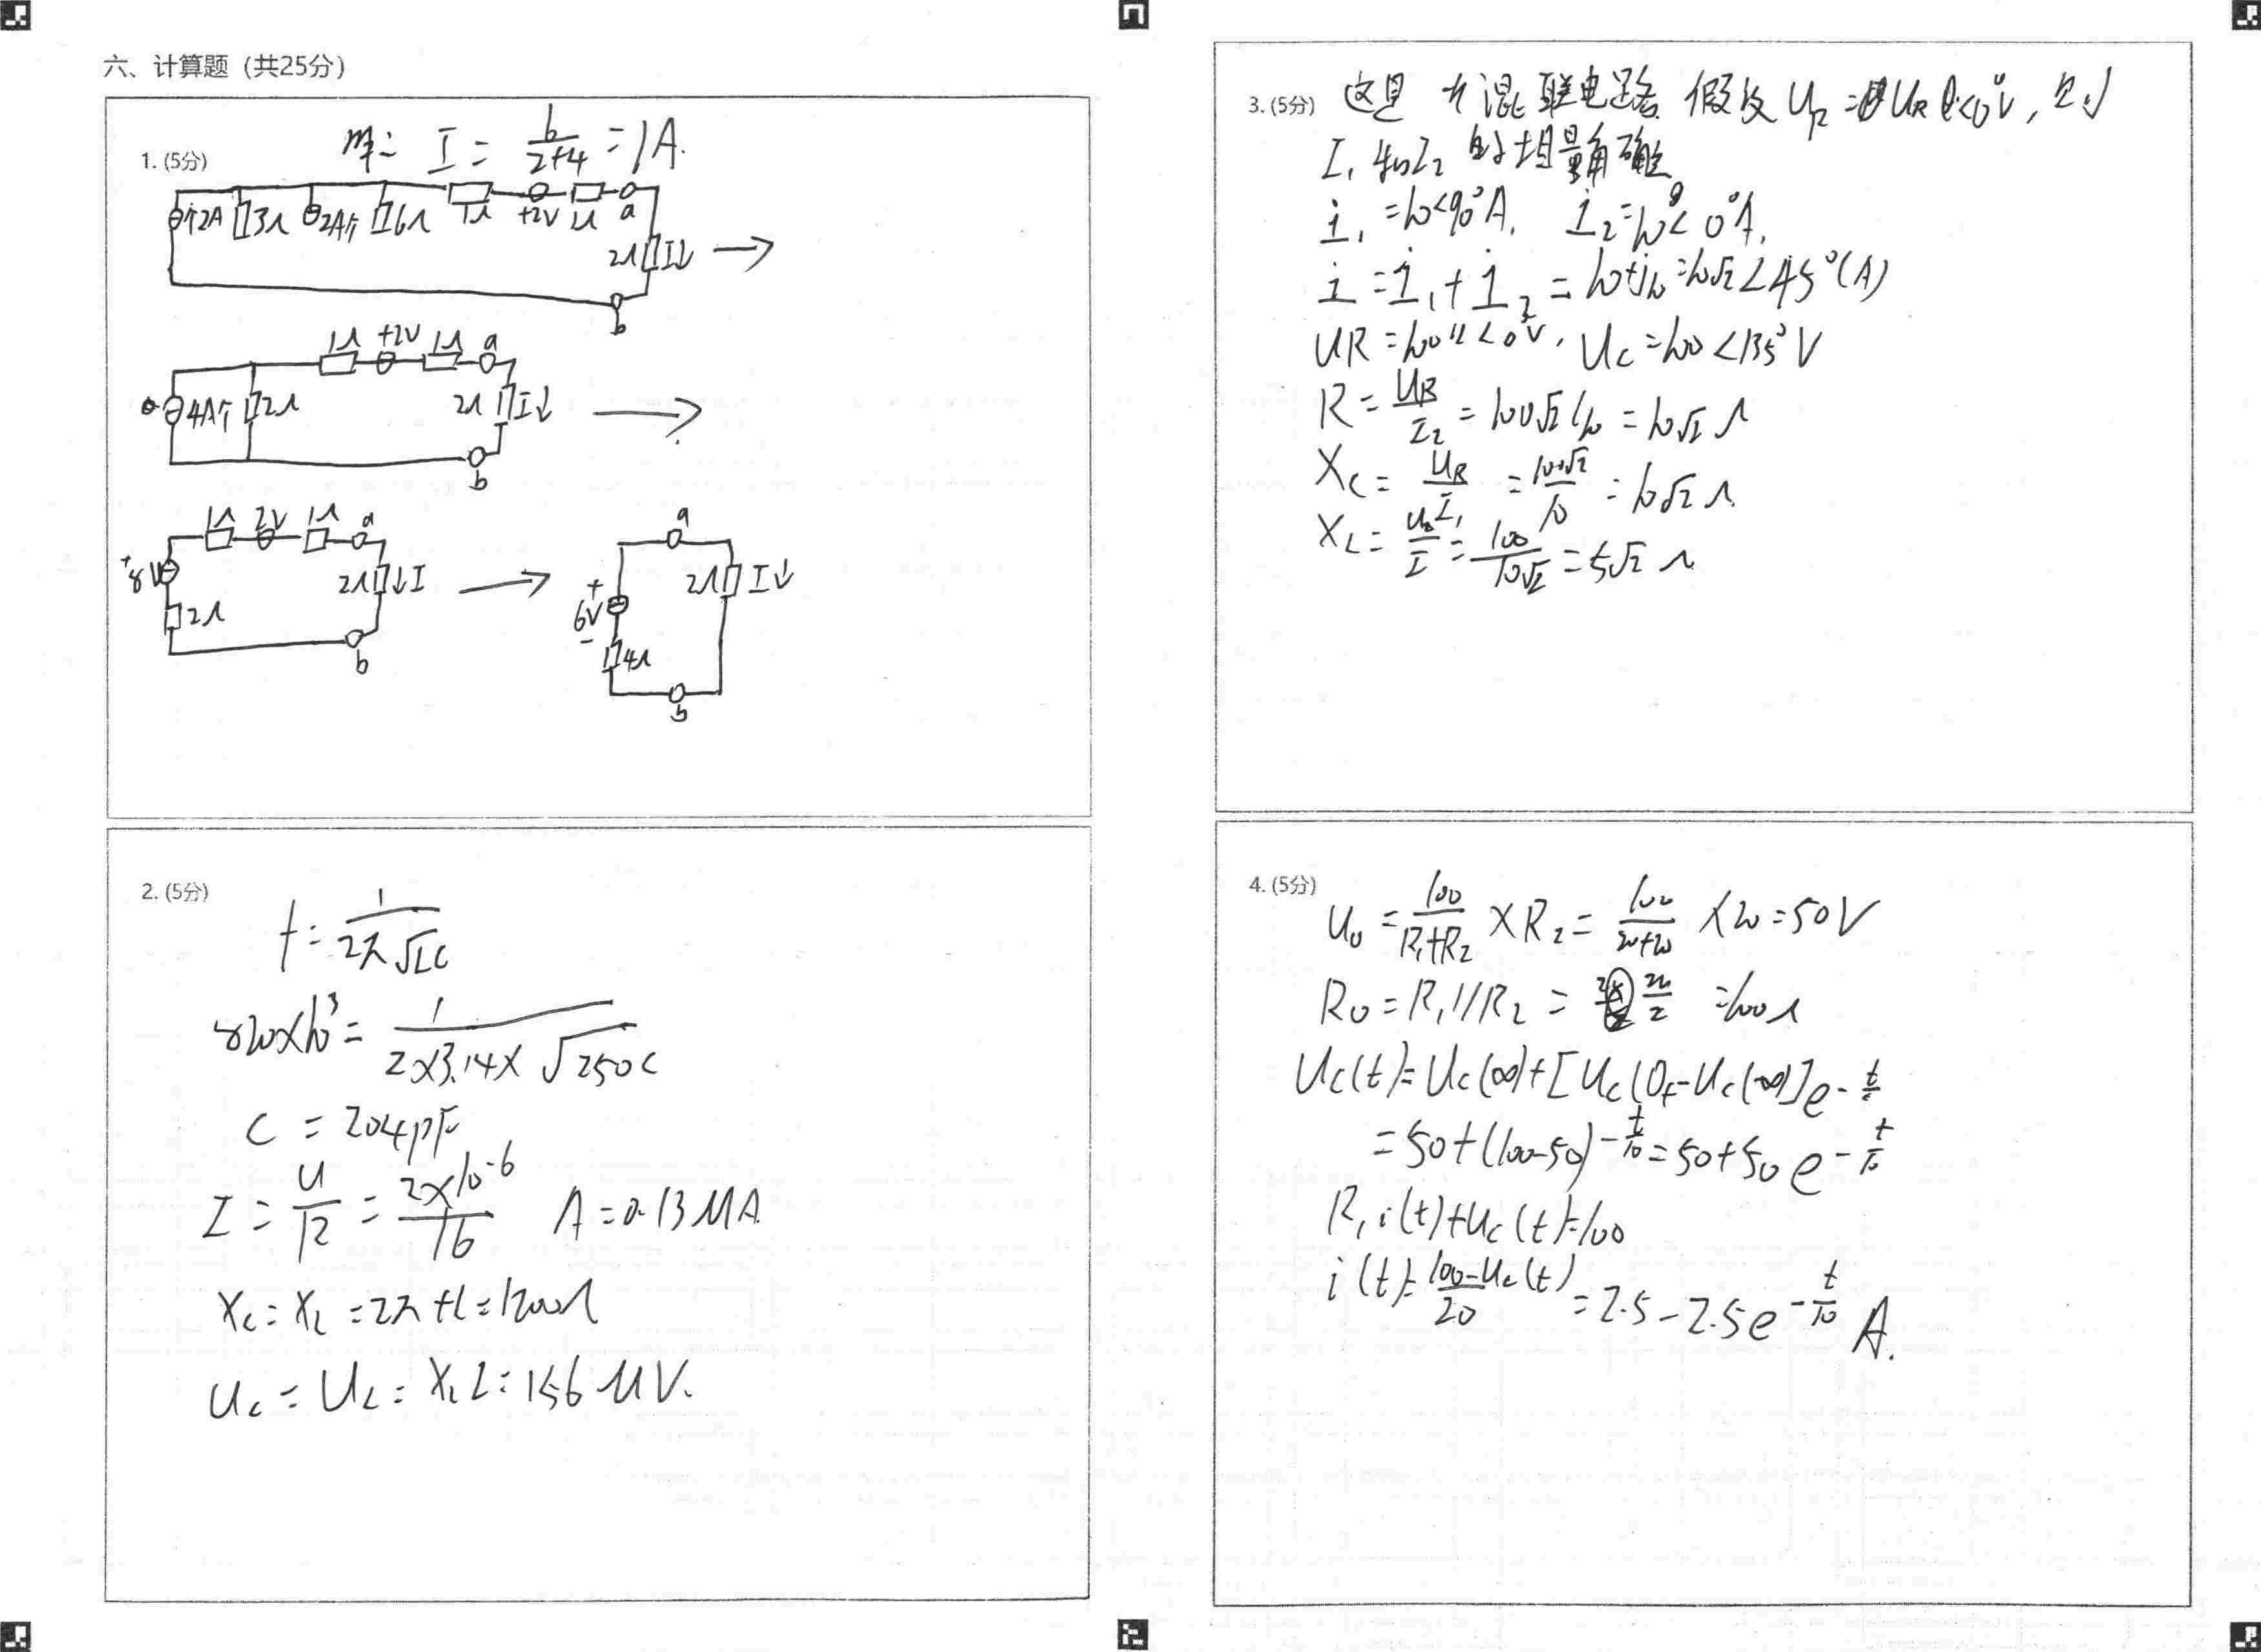 六、计算题 (共25分)
1. (5分)
I = 6/(2+4) = 1A.
2A 3Ω 2A 6Ω 1Ω +2V 1Ω a
2Ω I
b
1Ω +2V 1Ω a
4A 2Ω 2Ω I
b
1Ω 2V 1Ω a
+8V 2Ω I
2Ω
b
a
+ 6V - 2Ω I
4Ω
b
2. (5分)
f = 1/(2π√LC)
820×10³ = 1/(2×3.14×√250C)
C = 204pF
I = U/R = 2×10⁻⁶/16 A = 0.13μA
Xc = XL = 2πfL = 1200Ω
Uc = UL = XLI = 156μV.
3. (5分)
这是个混联电路 假设 UR = UR 0<0°V, 则
I₁和I₂的相量角确
İ₁ = 10<90°A, İ₂ = 10<0°A,
İ = İ₁ + İ₂ = 10+j10 = 10√2∠45°(A)
Uc = 100<135°V
R = UR/I₂ = 100√2/10 = 10√2Ω
Xc = UR/I₁ = 100√2/10 = 10√2Ω
XL = /I = 100/10√2 = 5√2Ω
4. (5分)
U₀ = 100/(R₁+R₂) × R₂ = 100/(20+20) × 20 = 50V
R₀ = R₁//R₂ = 20/2 = 10Ω
Uc(t) = Uc(∞) + [Uc(0+ - Uc(∞)]e-t/τ
= 50+(100-50)-t/10 = 50+50e-t/10
R₁i(t)+Uc(t)=100
i(t) = 100-Uc(t)/20 = 2.5-2.5e-t/10 A.